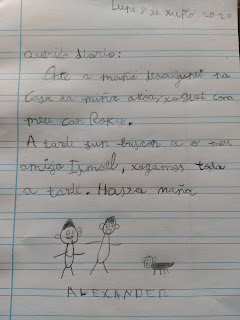 Luns 8 de xuño 2020
querido diario:
Onte a mañá desaiunei na
Casa da miña avoa, xoguei com
meu can Roky.
A tarde fun buscar a o meu
amigo Ismael, xogamos toda
a tarde. Hasta mañá
ALEXANDER